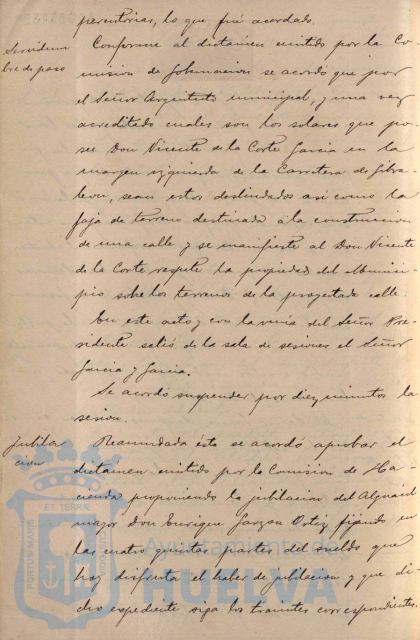 perentorias, lo que fué acordado.
Servidum
bre de paso
Conforme al dictámen emitido por la Co
mision de Gobernacion se acordó que por
el Señor Arquitecto municipal, y una vez
acreditado cuales son los solares que po-
see Don Vicente de la Corte Garcia en la
margen izquierda de la Carretera de Gibra-
leon, sean estos deslindados asi como la
faja de terreno destinada á la construccion
de una calle y se manifieste al Don Vicente
de la Corte respete la propiedad del Munici-
pio sobre los terrenos de la proyectada calle.
En este acto, y con la venia del Señor Pre-
sidente salió de la sala de sesiones el Señor
Garcia y Garcia.
Se acordó suspender por diez minutos la
sesion.
Jubila
cion
Reanudada esta se acordó aprobar el
dictamen emitido por la Comision de Ha-
cienda proponiendo la jubilacion del Alguacil
mayor Don Enrique Garzon Ortiz, fijando en
las cuatro quintas partes del sueldo que
hoy disfruta el haber de jubilacion y que di-
cho expediente siga los trámites correspondientes
PORTUS MARIS
ET TERRÆ
CUSTODIA
Ayuntamiento de
HUELVA